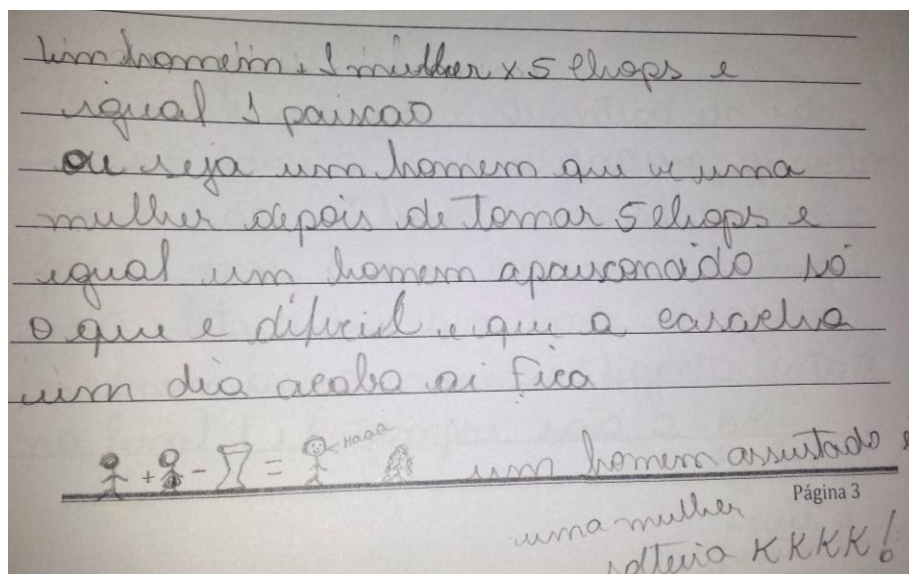 um homem + 1 mulher x 5 chops e
igual 1 paixao
ou seja um homem que ve uma
mulher depois de tomar 5 chops e
igual um homem apaixonado só
o que e dificil e que a cachaça
um dia acaba ai fica
+ - = Haaa um homem assustado e
Página 3
uma mulher
solteira KKKK!